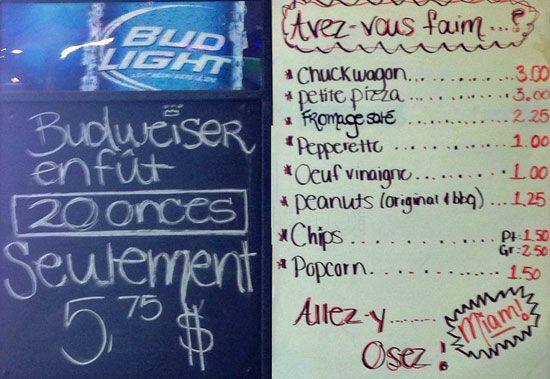 BUD
LIGHT
Budweiser
en fût
20 onces
Seulement
5,75 $
Avez-vous faim...?
* Chuckwagon.......... 3.00
* petite pizza.......... 3.00
* Fromage salé.......... 2.25
* Pepperette.......... 1.00
* Oeuf vinaigre.......... 1.00
* peanuts (original & bbq)... 1.25
* Chips.......... Pt: 1.50
Gr: 2.50
* Popcorn.......... 1.50
Allez-y.......
Osez!
Miam!